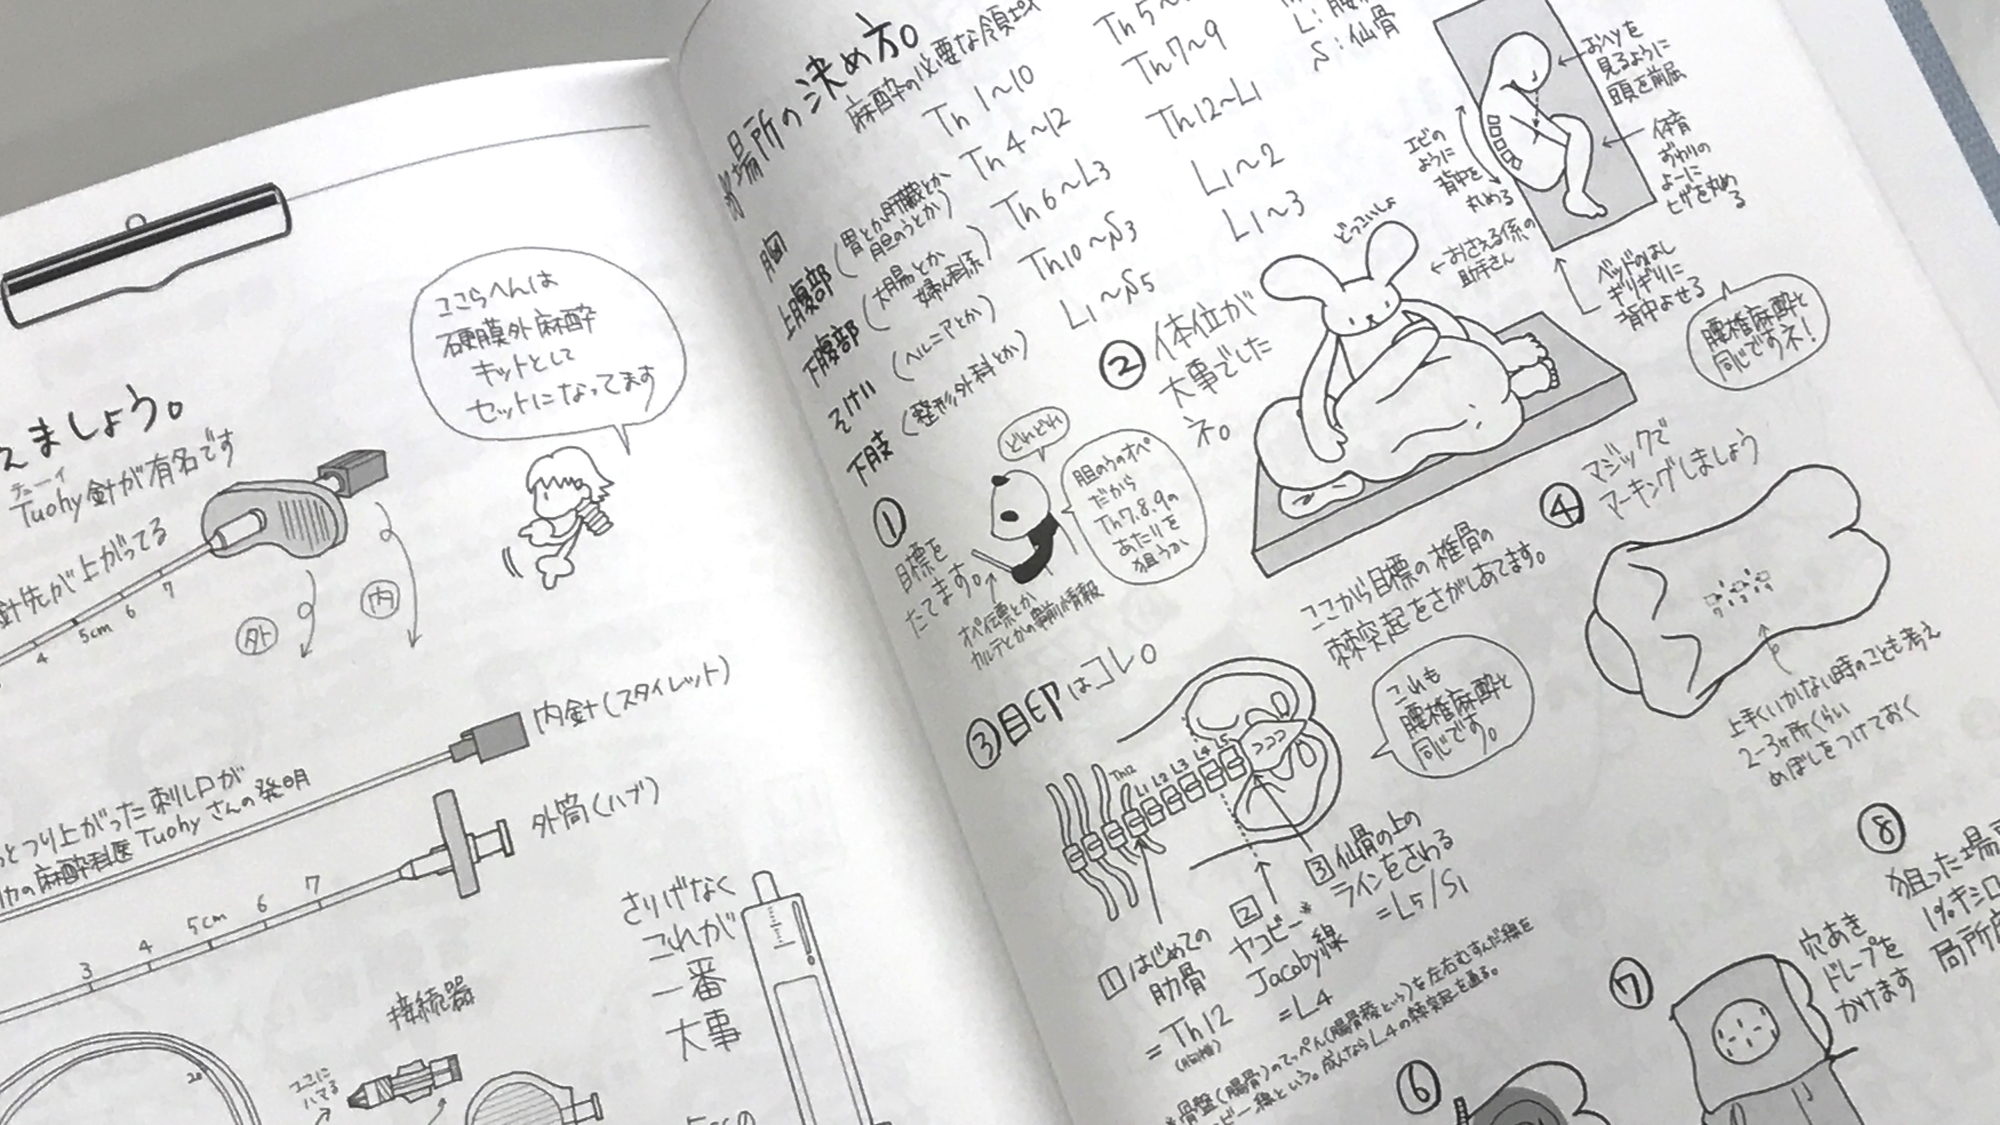 えましょう。
チューイ
Tuohy針が有名です
針先が上がってる
4 5cm 6 7
外
内
ここらへんは
硬膜外麻酔
キットとして
セットになってます
内針(スタイレット)
とつり上がった刺し口が
リカの麻酔科医Tuohyさんの発明
外筒(ハブ)
3 4 5cm 6 7
さりげなく
これが
一番
大事
接続器
ここに
ハマる
20
場所の決め方。
麻酔の必要な領域
Th5~
L:腰
S:仙骨
胸 Th1~10 Th7~9
上腹部(胃とか肝臓とか胆のうとか) Th4~12
下腹部(大腸とか婦人科系) Th6~L3 Th12~L1
そけい(ヘルニアとか) Th10~S3 L1~2
下肢(整形外科とか) L1~S5 L1~3
①
目標を
たてます。
どれどれ
胆のうのオペ
だから
Th7.8.9の
あたりを
狙うか
オペ伝票とか
カルテとかの事前の情報
②体位が
大事でした
ネ。
どっこいしょ
←おさえる係の
助手さん
おヘソを
見るように
頭を前屈
エビの
ように
背中を
丸める
体育
おわりの
よーに
ヒザを丸める
ベッドのはし
ギリギリに
背中よせる
腰椎麻酔と
同じですネ!
③目印はコレ。
ここから目標の椎骨の
棘突起をさがしあてます。
これも
腰椎麻酔と
同じです。
Th12 L1 L2 L3 L4 L5
1 はじめての
肋骨
=Th12
2 ヤコビー*
Jacoby線
=L4
3 仙骨の上の
ラインをさわる
=L5/S1
*骨盤(腸骨)のてっぺん(腸骨稜という)を左右むすんだ線を
ヤコビー線という。成人ならL4の棘突起を通る。
④
マジックで
マーキングしましょう
7 8 9
上手くいかない時のことも考え
2-3ヶ所くらい
めぼしをつけておく
⑥
⑦
穴あき
ドレープを
かけます
⑧
狙った場
1%キシロ
局所